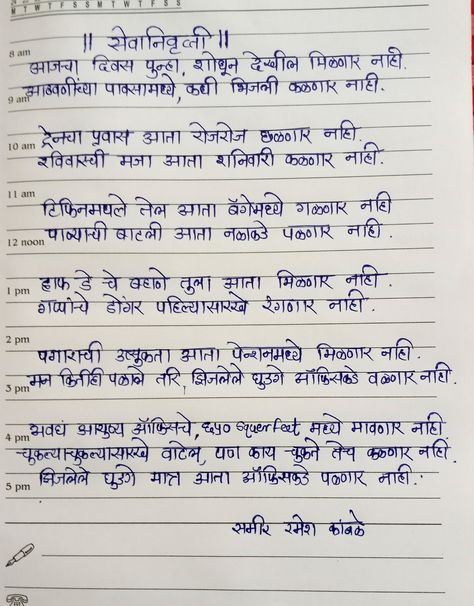 M T W T F S S M T W T F S S
|| सेवानिवृत्ती ||
8 am
आजचा दिवस पुन्हा, शोधून देखील मिळणार नाही.
आठवणींच्या पावसामध्ये, कधी भिजली कळणार नाही.
9 am
10 am ट्रेनचा प्रवास आता रोजरोज छळणार नाही.
रविवारची मजा आता शनिवारी कळणार नाही.
11 am
टिफिनमधले तेल आता बॅगेमध्ये गळणार नाही
पाण्याची बाटली आता नळाकडे पळणार नाही.
12 noon
1 pm हाफ डे चे बहाणे तुला आता मिळणार नाही.
गप्पांचे डोंगर पहिल्यासारखे रंगणार नाही.
2 pm
पगाराची उत्सूकता आता पेन्शनमध्ये मिळणार नाही.
मन कितीही पळाले तरि, झिजलेले गुडगे ऑफिसकडे वळणार नाही.
3 pm
अवघं आयुष्य ऑफिसचे, ६५० squerfeet मध्ये मावणार नाही
4 pm
चुकल्याचुकल्यासारखे वाटेल, पण काय चुकते तेच कळणार नाही.
झिजलेले गुडगे मात्र आता ऑफिसकडे पळणार नाही.
5 pm
समीर रमेश कांबळे